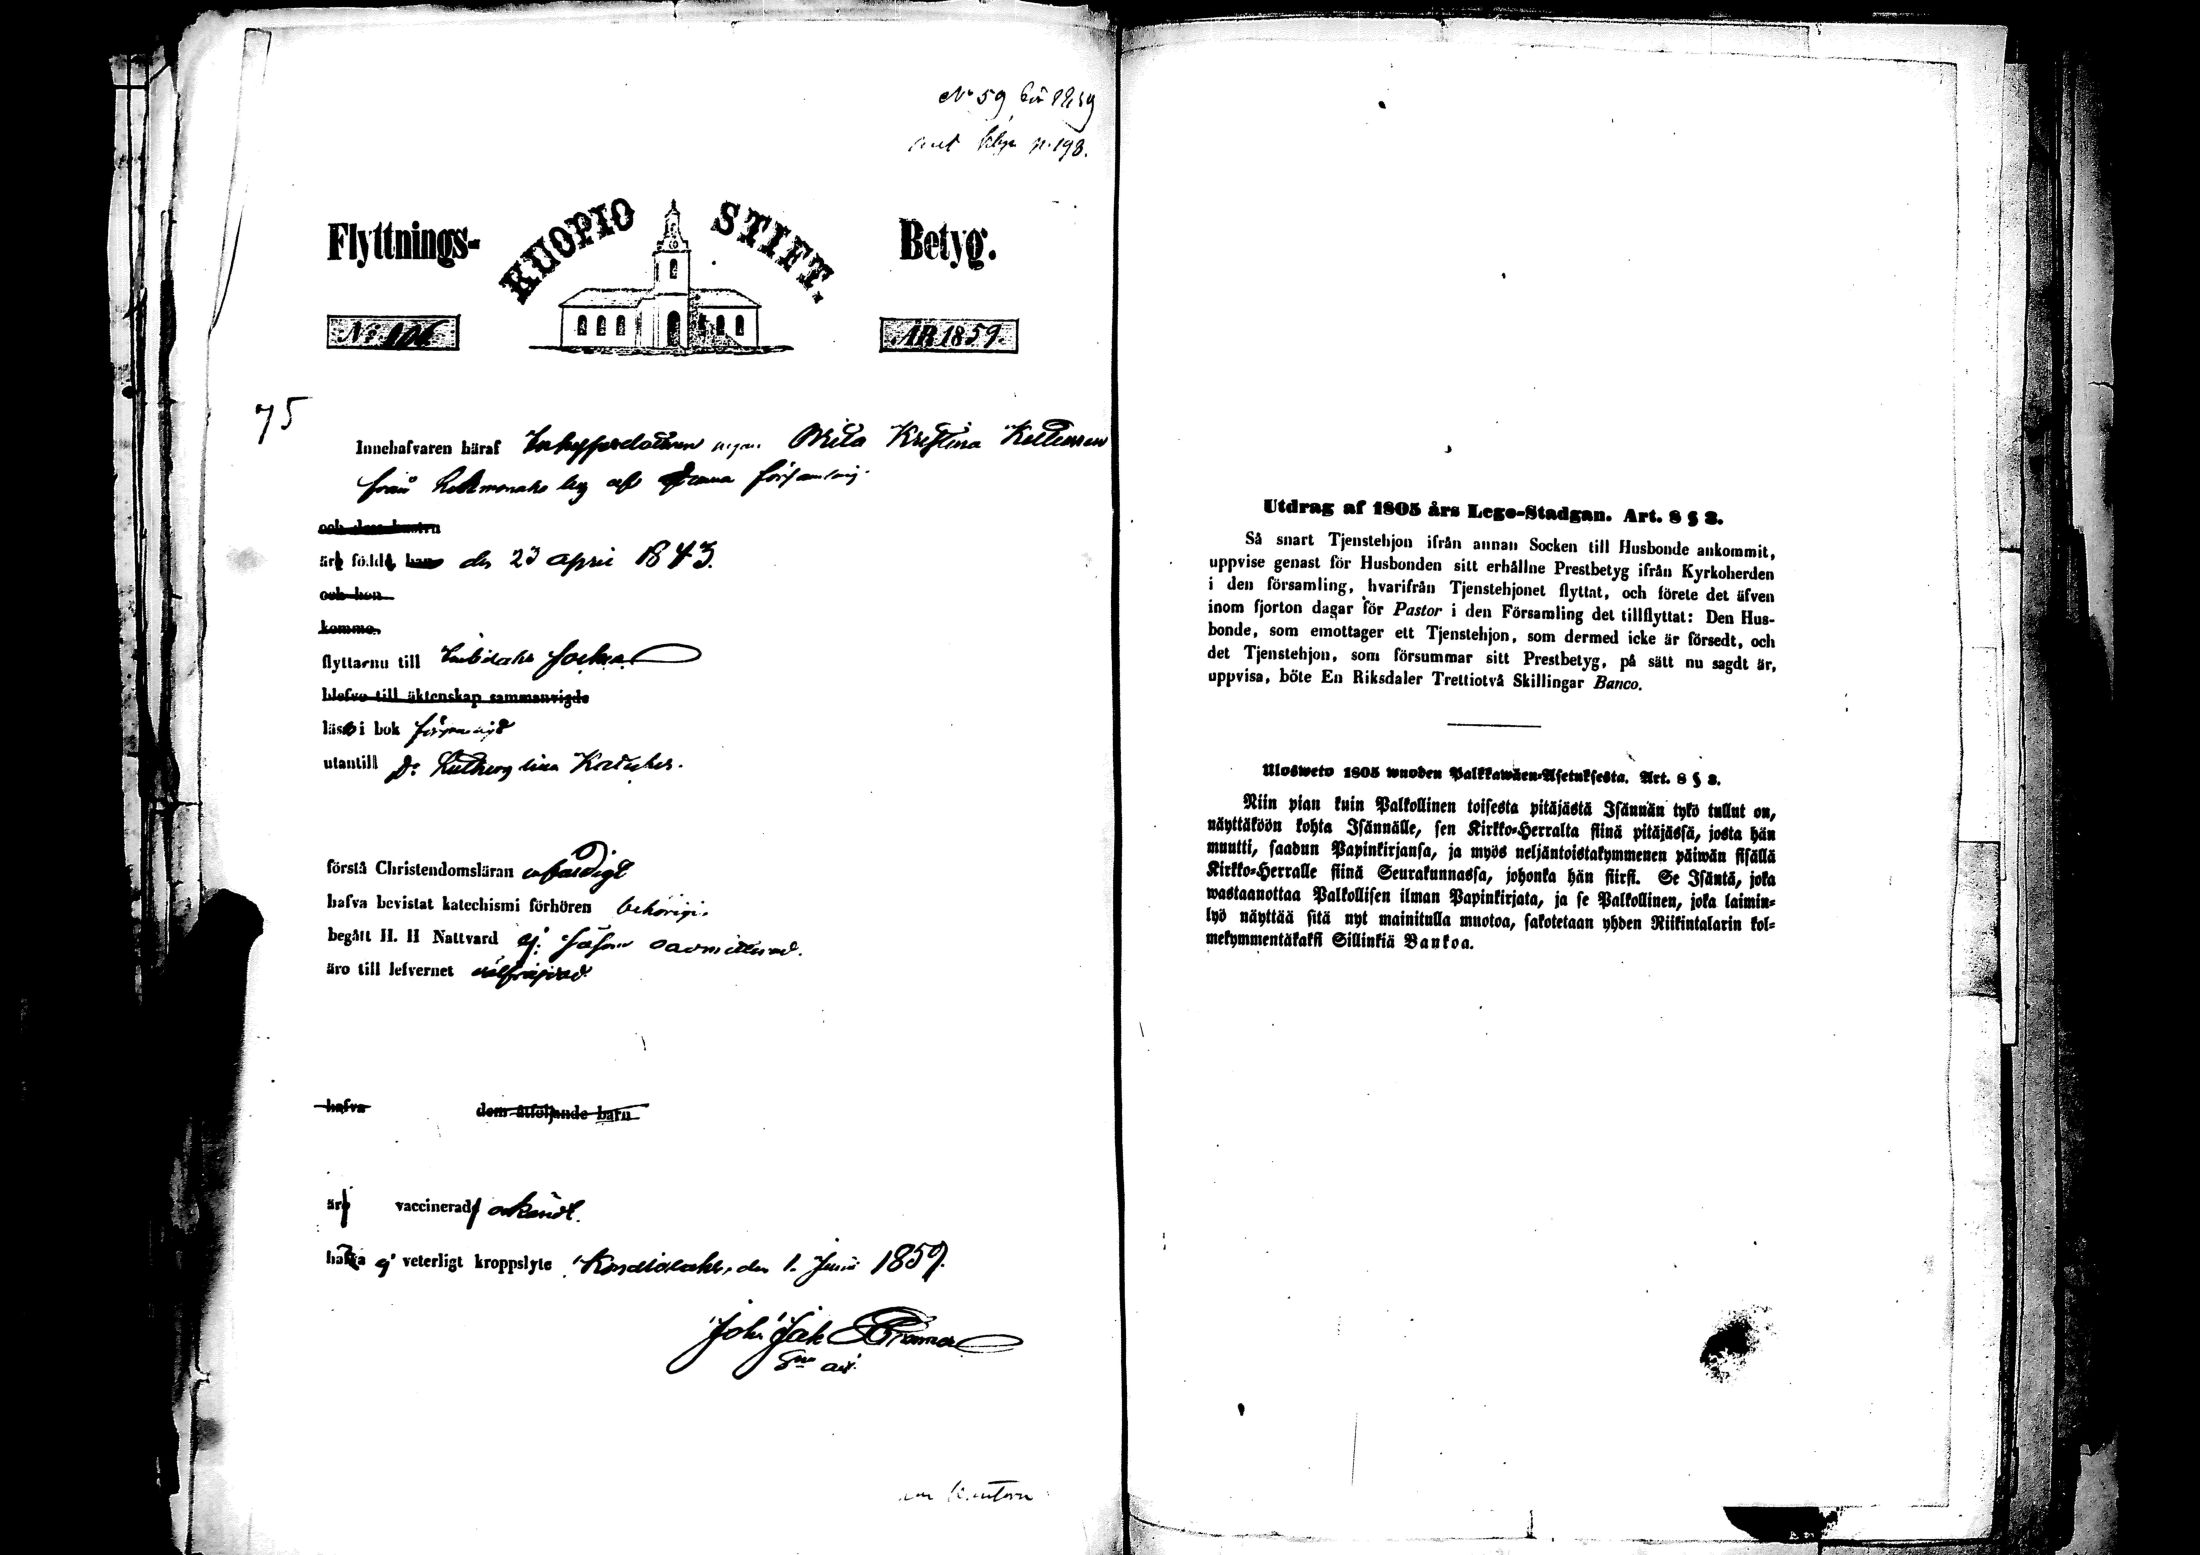 No 59 för 1859
n. 198.
Flyttnings-
KUOPIO STIFT.
Betyg.
No 106
ÅR 1859.
75
Innehafvaren häraf Brita Kristina Kettunen
från by af denna församling.
och dess hustru
äro födde, han den 23 april 1843.
och hon
komne,
flyttar nu till socken
blefvo till äktenskap sammanvigde
läsa i bok försvarligt
utantill Do Lutherg lilla Kateches.
förstå Christendomsläran enfaldigt
hafva bevistat katechismi förhören behörigt.
begått H. H Nattvard ej admitterad.
äro till lefvernet välfrejdad
hafva dem åtföljande barn
äro vaccinerad okändt.
hafva ej veterligt kroppslyte Kondiolaks, den 1. Juni 1859.
Joh. Jak.
Utdrag af 1805 års Lego-Stadgan. Art. 8 § 3.
Så snart Tjenstehjon ifrån annan Socken till Husbonde ankommit,
uppvise genast för Husbonden sitt erhållne Prestbetyg ifrån Kyrkoherden
i den församling, hvarifrån Tjenstehjonet flyttat, och förete det äfven
inom fjorton dagar för Pastor i den Församling det tillflyttat: Den Hus-
bonde, som emottager ett Tjenstehjon, som dermed icke är försedt, och
det Tjenstehjon, som försummar sitt Prestbetyg, på sätt nu sagdt är,
uppvisa, böte En Riksdaler Trettiotvå Skillingar Banco.
Ulosweto 1805 wuoden Palkkawäen-Asetuksesta. Art. 8 § 3.
Niin pian kuin Palkollinen toisesta pitäjästä Isännän tykö tullut on,
näyttäköön kohta Isännälle, sen Kirkko-Herralta siinä pitäjässä, josta hän
muutti, saadun Papinkirjansa, ja myös neljäntoistakymmenen päiwän sisällä
Kirkko-Herralle siinä Seurakunnassa, johonka hän siirsi. Se Isäntä, joka
wastaanottaa Palkollisen ilman Papinkirjata, ja se Palkollinen, joka laimin-
lyö näyttää sitä nyt mainitulla muotoa, sakotetaan yhden Riikintalarin kol-
mekymmentäkaksi Sillinkiä Bankoa.